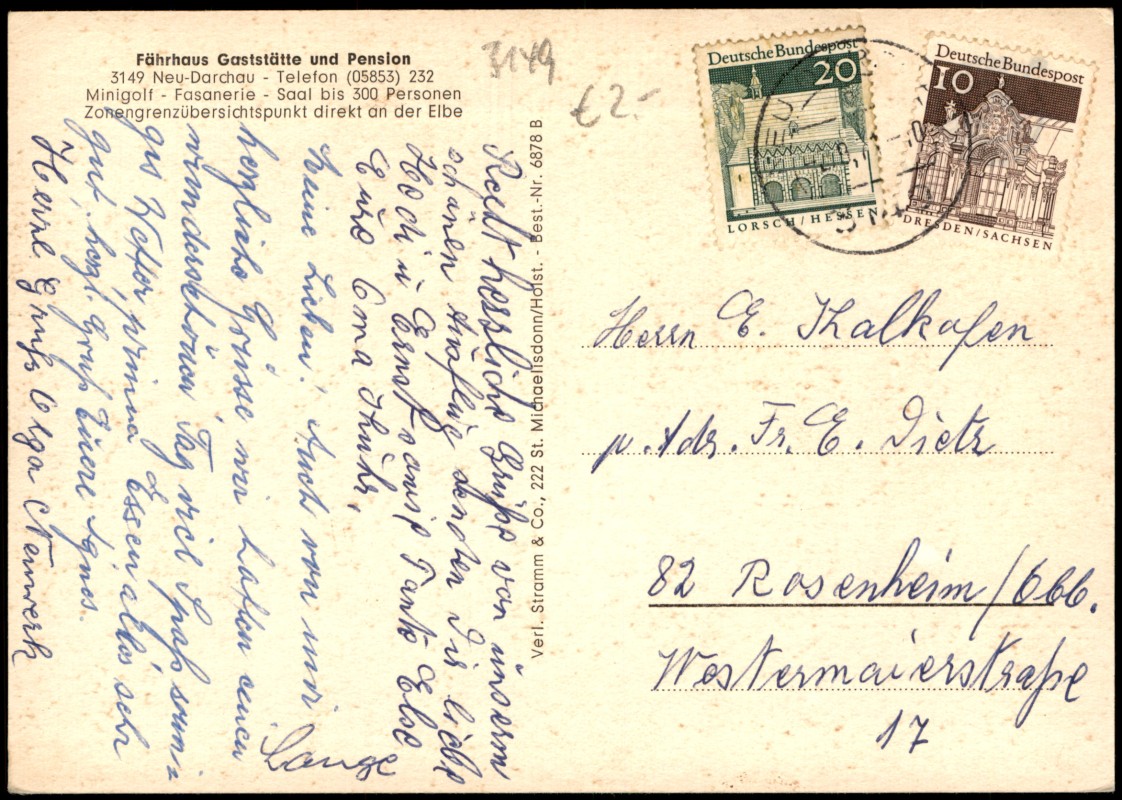 Fährhaus Gaststätte und Pension
3149 Neu-Darchau - Telefon (05853) 232
Minigolf - Fasanerie - Saal bis 300 Personen
Zonengrenzübersichtspunkt direkt an der Elbe
3149
€ 2.-
Deutsche Bundespost
20
LORSCH/HESSEN
Deutsche Bundespost
10
DRESDEN/SACHSEN
Recht herzliche Grüße von unserm
schönen Ausflug senden Dir liebe
Hedi u Ernst sowie Tante Else
Eure Oma
Lange
Meine Lieben! Auch von mir
herzliche Grüsse wir haben einen
wunderschönen Tag viel Spaß sonni=
ges Wetter, prima Essen, alles sehr
gut, herzl. Gruß Eure Agnes.
Herzl Gruß Olga
Verl. Stramm & Co., 222 St. Michaelisdonn/Holst. - Best.-Nr. 6878 B
Herrn E. Kalkofen
p. Adr. Fr. E. Dietz
82 Rosenheim/Obb.
Westermaierstraße
17